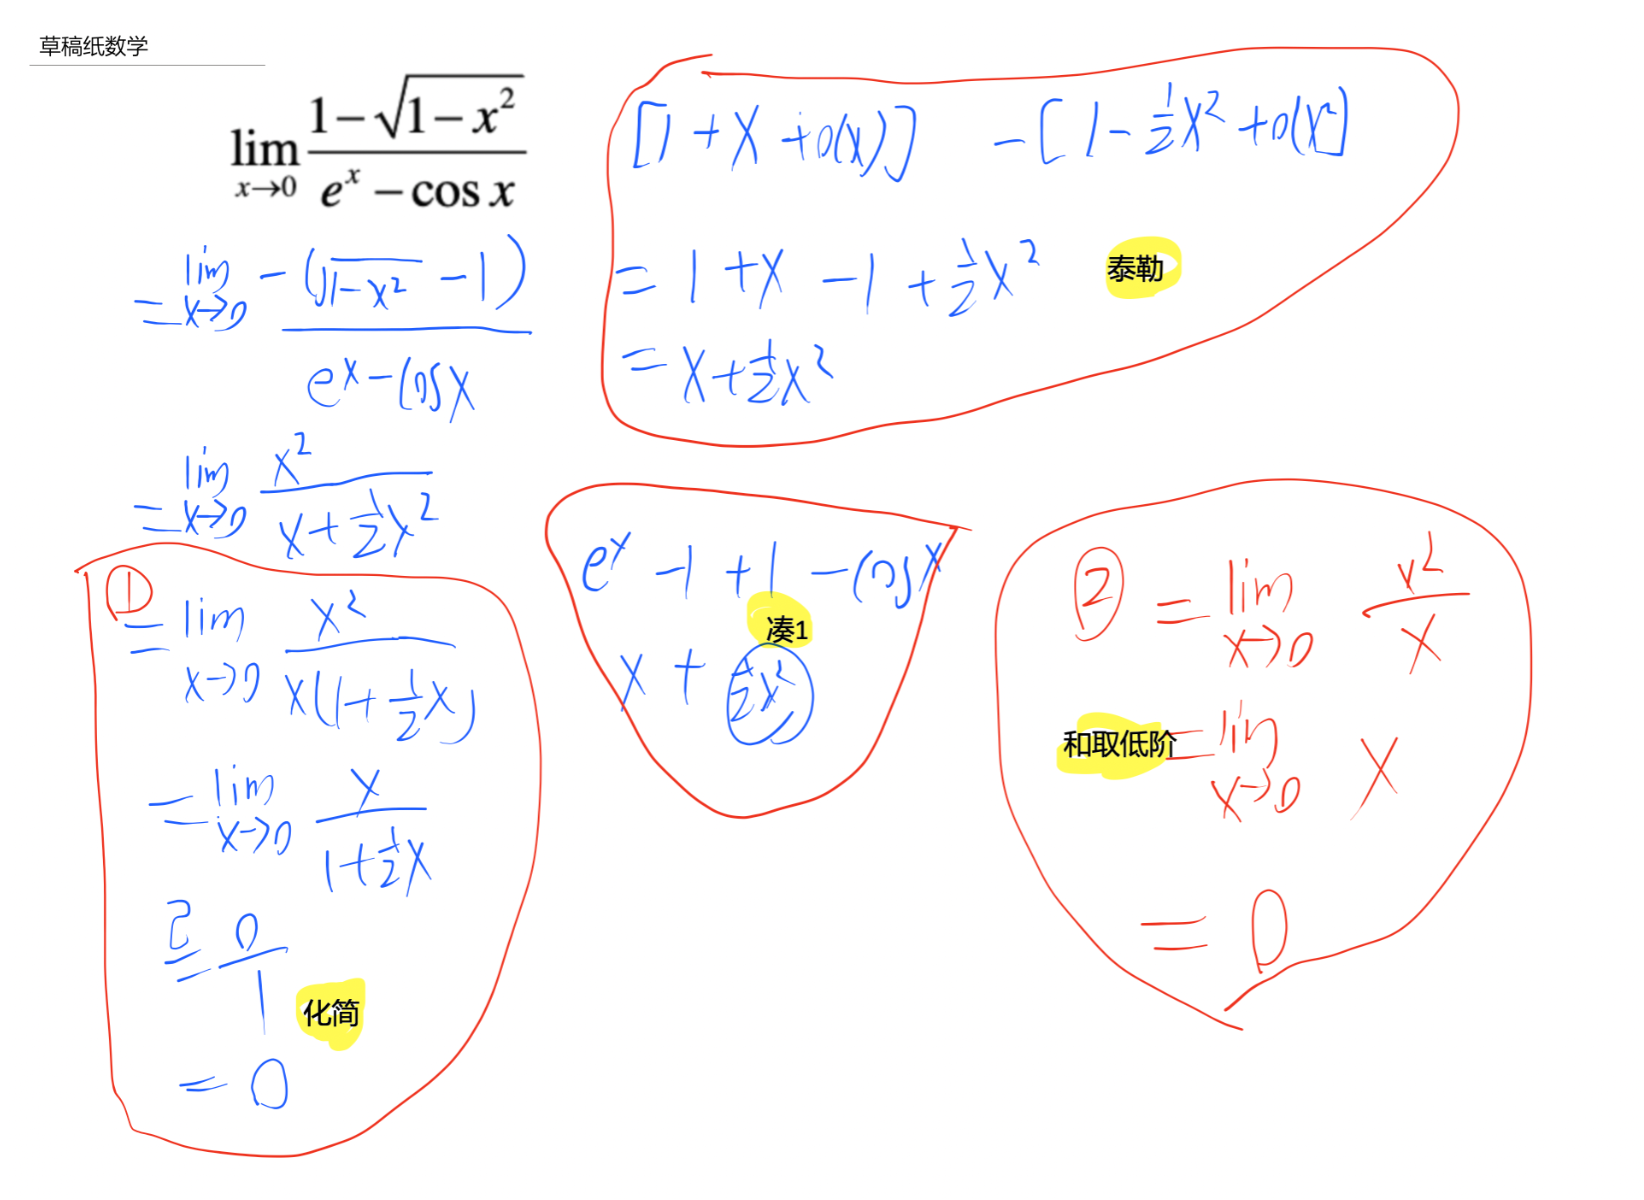 草稿纸数学
lim x→0 (1-√(1-x²))/(eˣ-cos x)
= lim x→0 -(√(1-x²) -1)/(eˣ-cosx)
= lim x→0 x²/(x+½x²)
① = lim x→0 x²/(x(1+½x))
= lim x→0 x/(1+½x)
= 0/1
化简
= 0
[1+x+o(x)] -[1-½x²+o(x²)]
= 1+x -1 +½x²
泰勒
= x+½x²
eˣ -1 +1 -cosx
凑1
x + ½x²
② = lim x→0 x²/x
和取低阶
= lim x→0 x
= 0